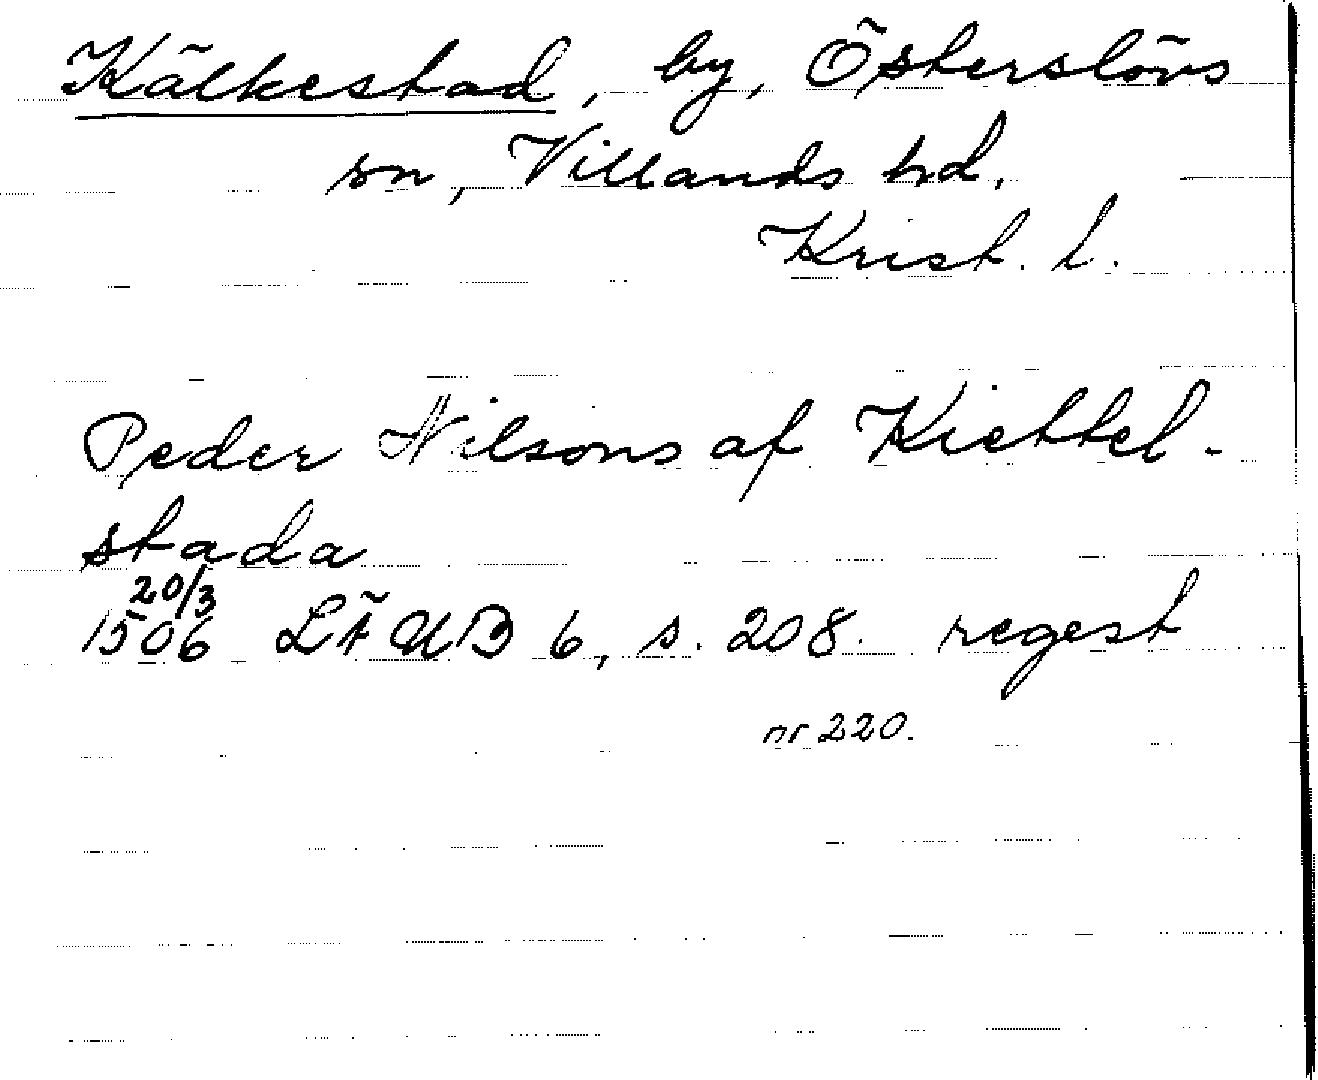 Kälkestad, by, Österslövs
sn, Villands hd,
Krist. l.
Peder Nilsons af Kiettel-
stada
20/3
1506 LÄUB 6, s. 208. regest
nr 220.